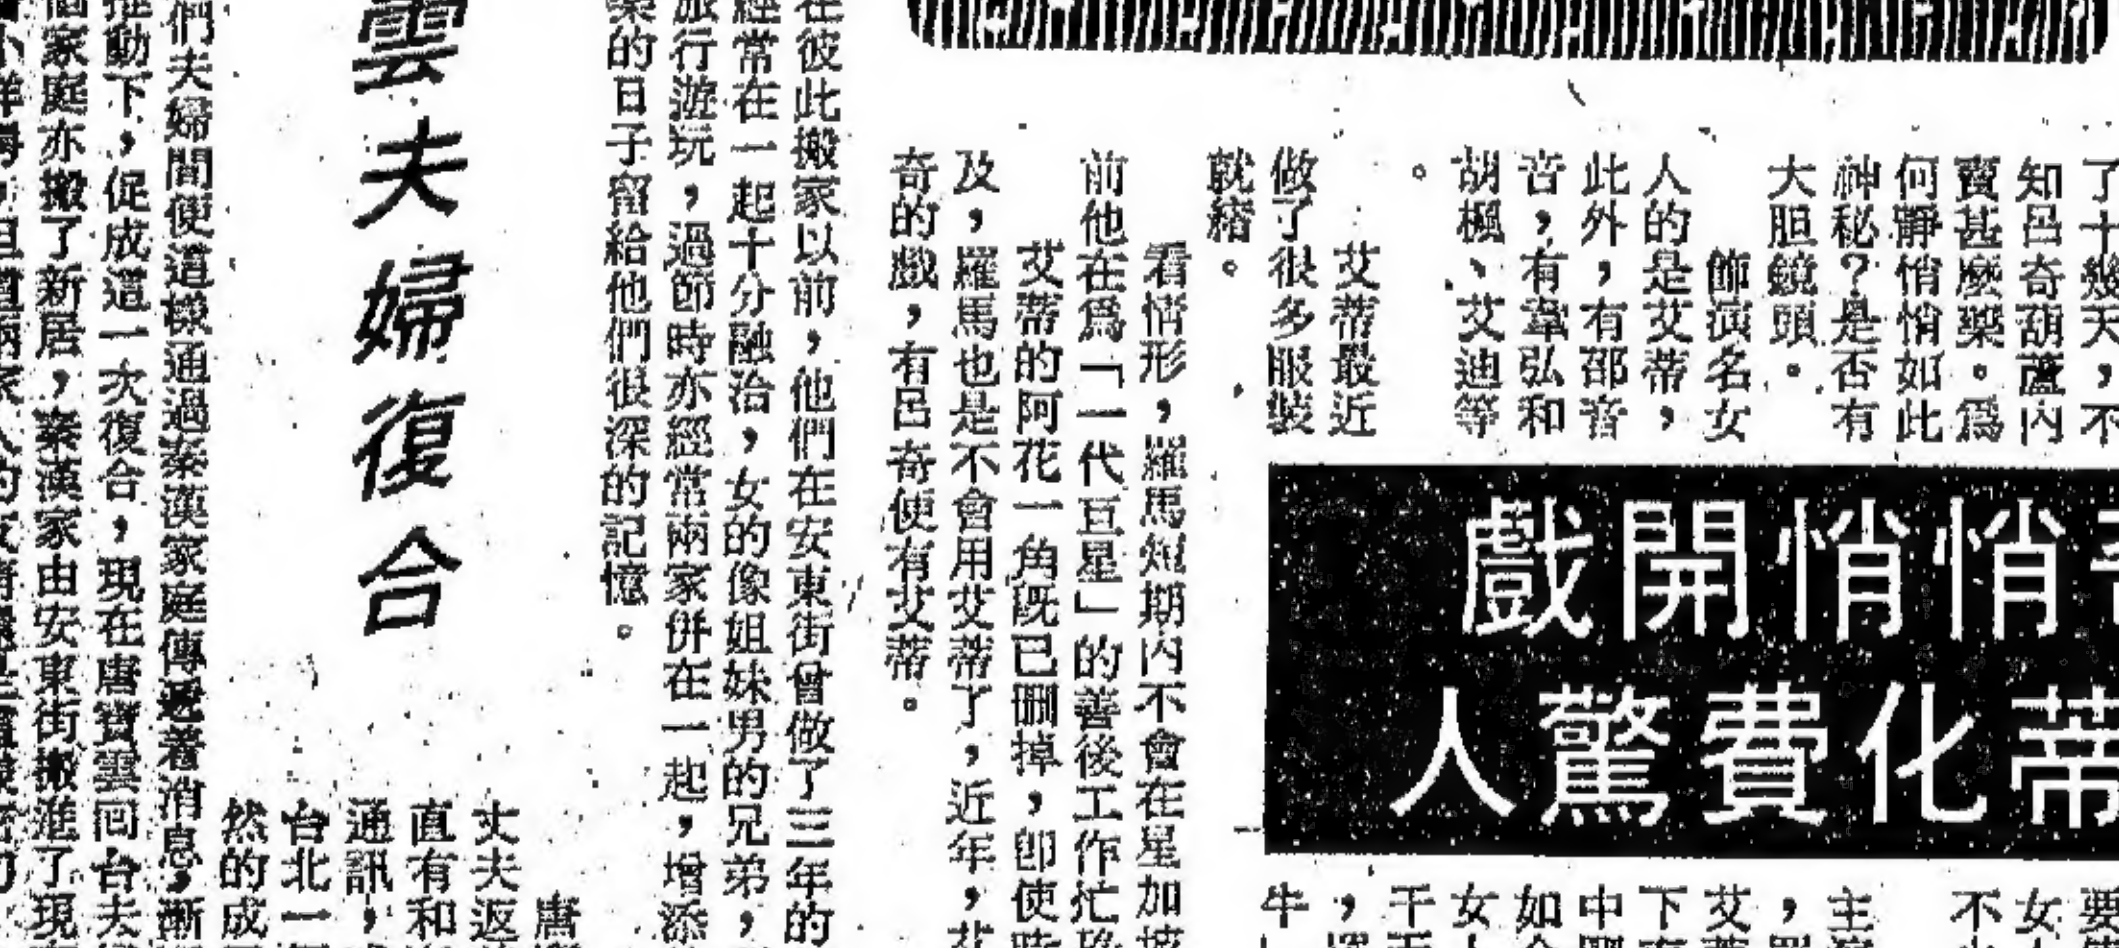 悄悄開戲
蒂化費驚人
了十幾天，不
知呂奇葫蘆內
賣甚麼藥。爲
何靜悄悄如此
神秘？是否有
大胆鏡頭。
飾演名女
人的是艾蒂，
此外，有邵音
音，有韋弘和
胡楓、艾迪等
。
艾蒂最近
做了很多服裝
就緒。
看情形，羅馬短期內不會在星加坡
前他在爲「一代亘星」的善後工作忙
艾蒂的阿花一角既已刪掉，即使
及，羅馬也是不會用艾蒂了，近年，艾
奇的戲，有呂奇便有艾蒂。
在彼此搬家以前，他們在安東街曾做了三年的
經常在一起十分融洽，女的像姐妹男的兄弟，
旅行遊玩，過節時亦經常兩家併在一起，增添
樂的日子留給他們很深的記憶。
雲夫婦復合
唐
丈夫返
直有和
通訊，
台北一
然的成
們夫婦間便這樣通過秦漢家庭傳遞着消息，漸
推動下，促成這一次復合，現在唐寶雲回台夫
個家庭亦搬了新居，秦漢家由安東街搬進了現
主
，
艾
下
中
如
女
干
，
牛
要
女
不